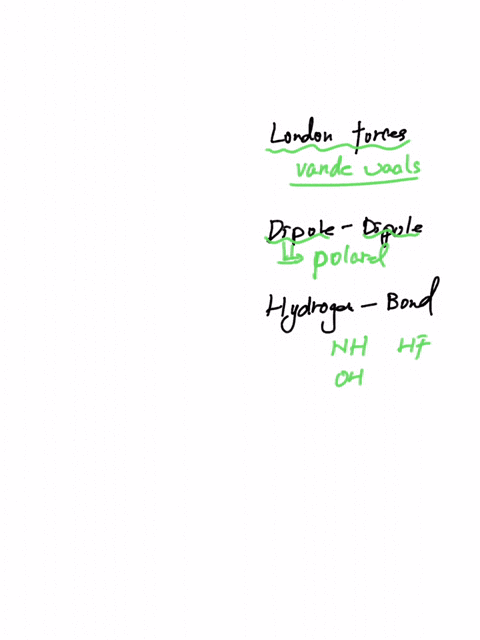 London forces
vande waals
Dipole - Dipole
polard
Hydrogen - Bond
NH HF
OH